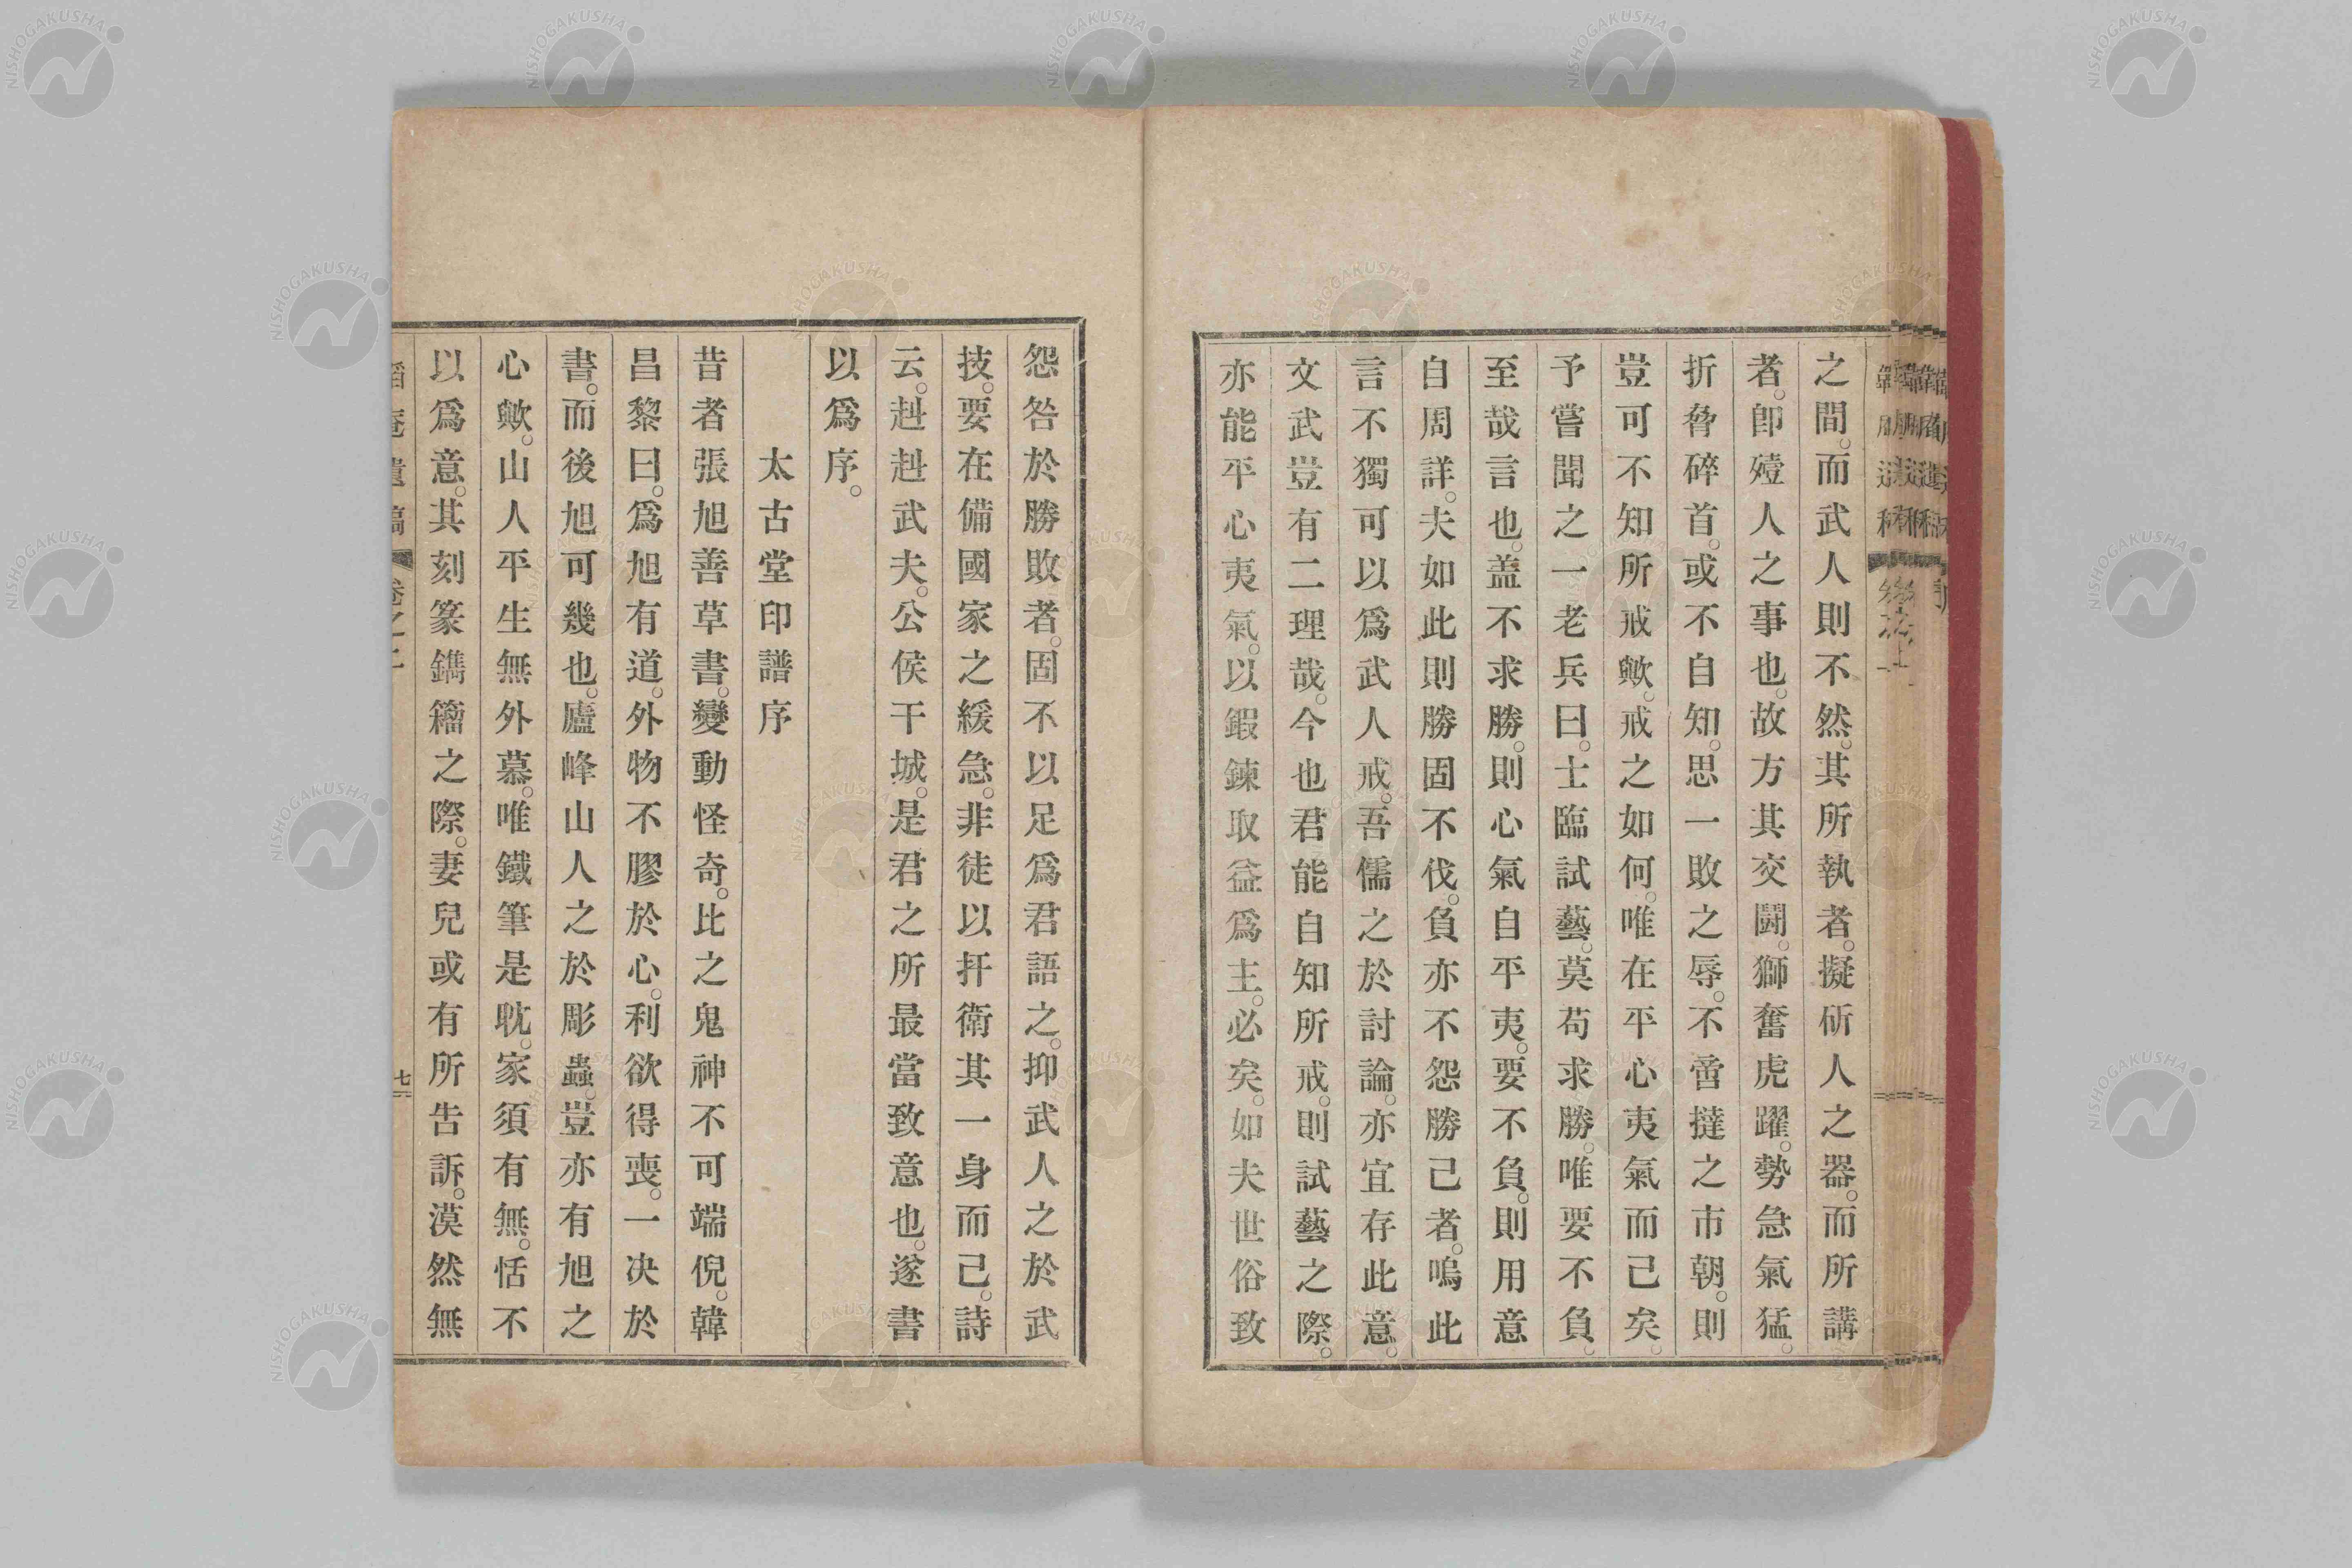 之間。而武人則不然。其所執者。擬斫人之器。而所講
者。卽殪人之事也。故方其交鬪。獅奮虎躍。勢急氣猛。
折脅碎首。或不自知。思一敗之辱。不啻撻之市朝。則
豈可不知所戒歟。戒之如何。唯在平心夷氣而己矣。
予嘗聞之一老兵曰。士臨試藝。莫苟求勝。唯要不負。
至哉言也。盖不求勝。則心氣自平夷。要不負。則用意
自周詳。夫如此則勝固不伐。負亦不怨勝己者。嗚此
言不獨可以爲武人戒。吾儒之於討論。亦宜存此意。
文武豈有二理哉。今也君能自知所戒。則試藝之際。
亦能平心夷氣。以鍜鍊取益爲主。必矣。如夫世俗致
怨咎於勝敗者。固不以足爲君語之。抑武人之於武
技。要在備國家之緩急。非徒以扞衛其一身而己。詩
云。赳赳武夫。公侯干城。是君之所最當致意也。遂書
以爲序。
太古堂印譜序
昔者張旭善草書。變動怪奇。比之鬼神不可端倪。韓
昌黎曰。爲旭有道。外物不膠於心。利欲得喪。一决於
書。而後旭可幾也。廬峰山人之於彫蟲。豈亦有旭之
心歟。山人平生無外慕。唯鐵筆是耽。家須有無。恬不
以爲意。其刻篆鐫籀之際。妻兒或有所告訴。漠然無
卷之二
七
NISHOGAKUSHA